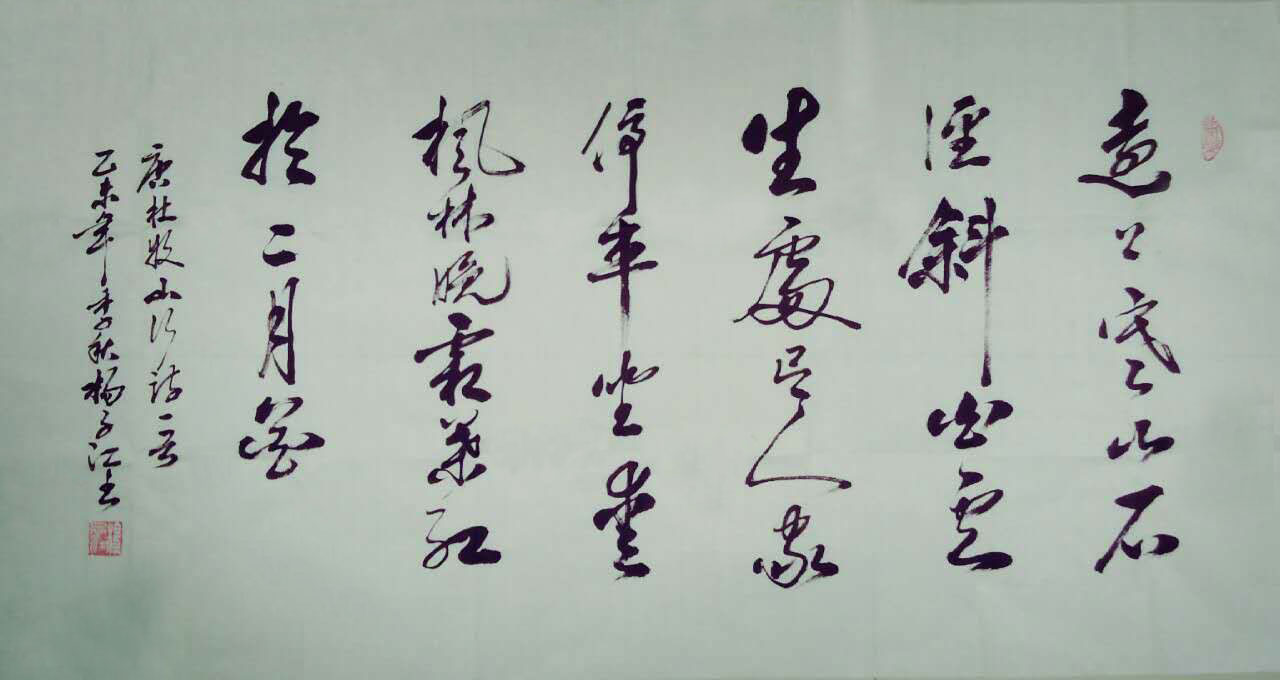 遠上寒山石
徑斜白雲
生處有人家
停車坐愛
楓林晚霜葉紅
於二月花
唐杜牧山行詩一首
乙未年季秋楊子江書